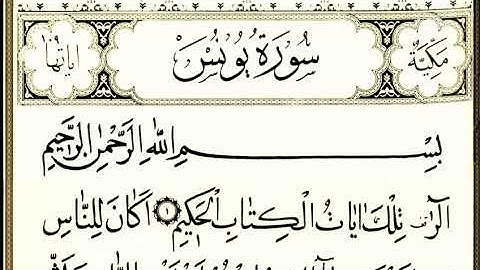 مَكِّيَّةٌ سُورَةُ يُونُسَ اٰيَاتُهَا
بِسْمِ اللّٰهِ الرَّحْمٰنِ الرَّحِيمِ
الٓرٰ تِلْكَ اٰيَاتُ الْكِتَابِ الْحَكِيمِ ۝١ اَكَانَ لِلنَّاسِ